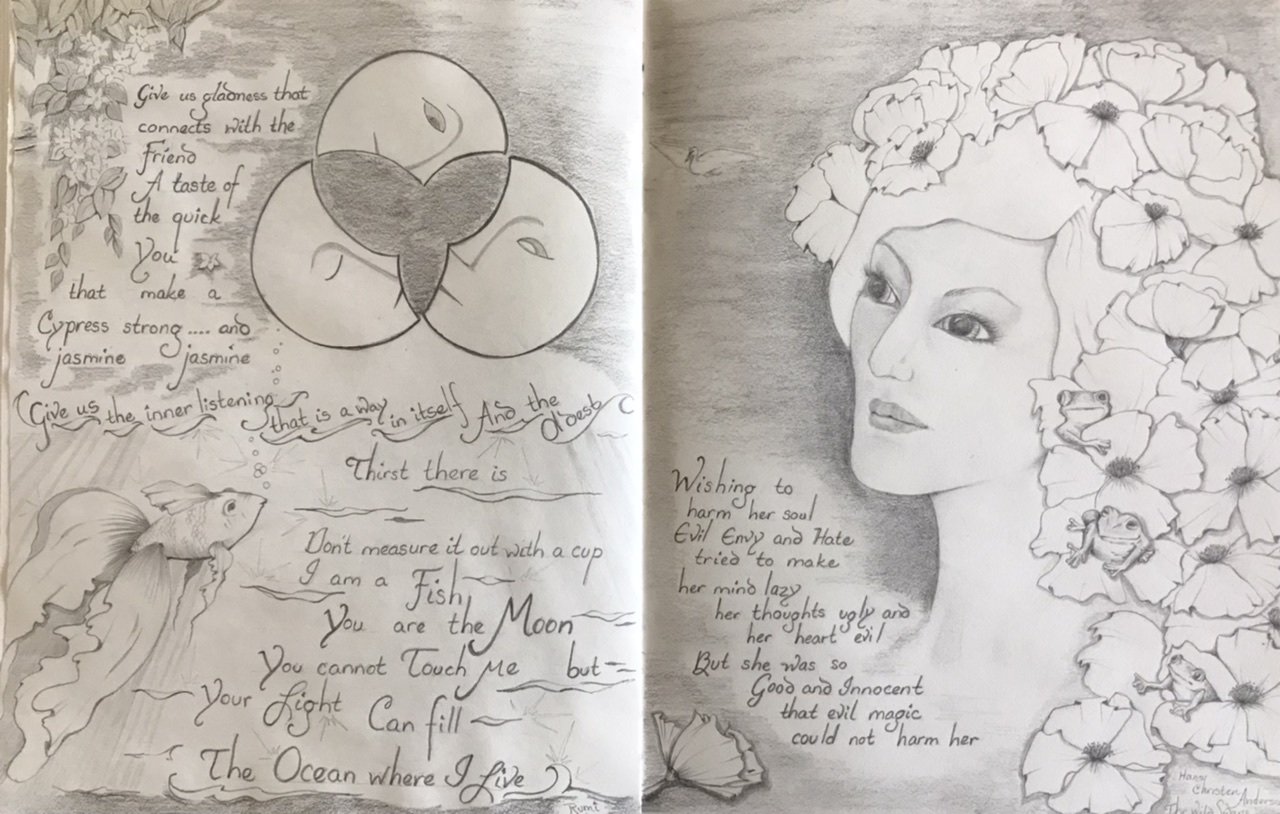 Give us gladness that
connects with the
Friend
A taste of
the quick
You
that make a
Cypress strong .... and
jasmine jasmine
Give us the inner listening that is a way in itself And the oldest
Thirst there is
Don't measure it out with a cup
I am a Fish
You are the Moon
You cannot Touch Me but
Your Light Can fill
The Ocean where I Live
Rumi
Wishing to
harm her soul
Evil Envy and Hate
tried to make
her mind lazy
her thoughts ugly and
her heart evil
But she was so
Good and Innocent
that evil magic
could not harm her
Hans
Christen
Anderson
The Wild Swans